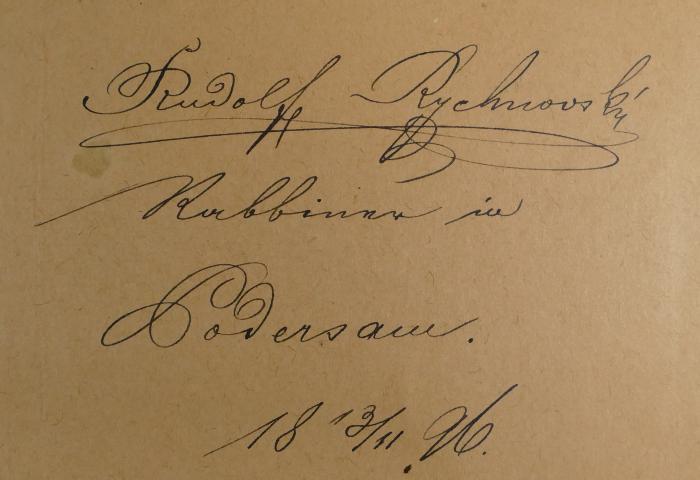 Rudolf Rychnovský
Rabbiner in
Podersam.
18 13/11. 96.